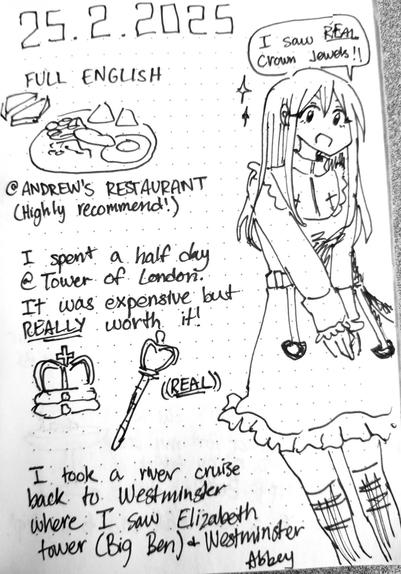 25.2.2025
I saw REAL
Crown Jewels!!
FULL ENGLISH
@ANDREW'S RESTAURANT
(Highly recommend!)
I spent a half day
@ Tower of London.
It was expensive but
REALLY worth it!
((REAL))
I took a river cruise
back to Westminster
where I saw Elizabeth
tower (Big Ben) & Westminster
Abbey